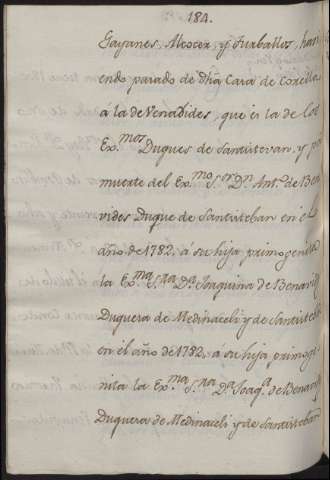 184.
Gayanes, Alcocer, y Turballos, han
endo parado de dha Casa de Corella
á la de Venavides, que es la de los
Ex.mos Duques de Santistevan, y por
muerte del Ex.mo S.or Dn. Ant.o de Ben
vides Duque de Santisteban en el
año de 1782, á su hija primogenita
la Ex.ma S.ra Da. Joaquina de Benavid
Duquesa de Medinaceli y de Santisteba
en el año de 1782, a su hija primogé
nita la Ex.ma S.ra Da. Joaq.a de Benavi
Duquesa de Medinaceli y de Santisteban